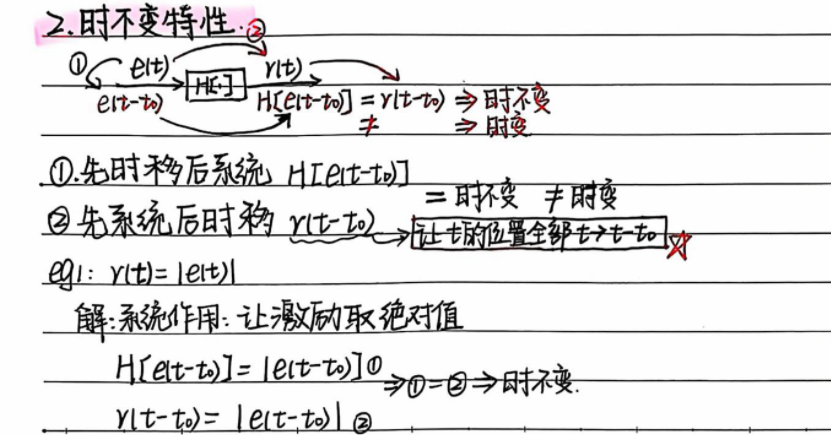 2.时不变特性.②
① e(t) → H[·] → r(t)
e(t-t₀) H[e(t-t₀)] = r(t-t₀) ⇒ 时不变
≠ ⇒ 时变
①.先时移后系统 H[e(t-t₀)]
= 时不变 ≠ 时变
② 先系统后时移 r(t-t₀) → 让t的位置全部t→t-t₀ ☆
eg1: r(t)=|e(t)|
解:系统作用:让激励取绝对值
H[e(t-t₀)]=|e(t-t₀)|① ⇒①=②⇒时不变.
r(t-t₀)=|e(t-t₀)|②